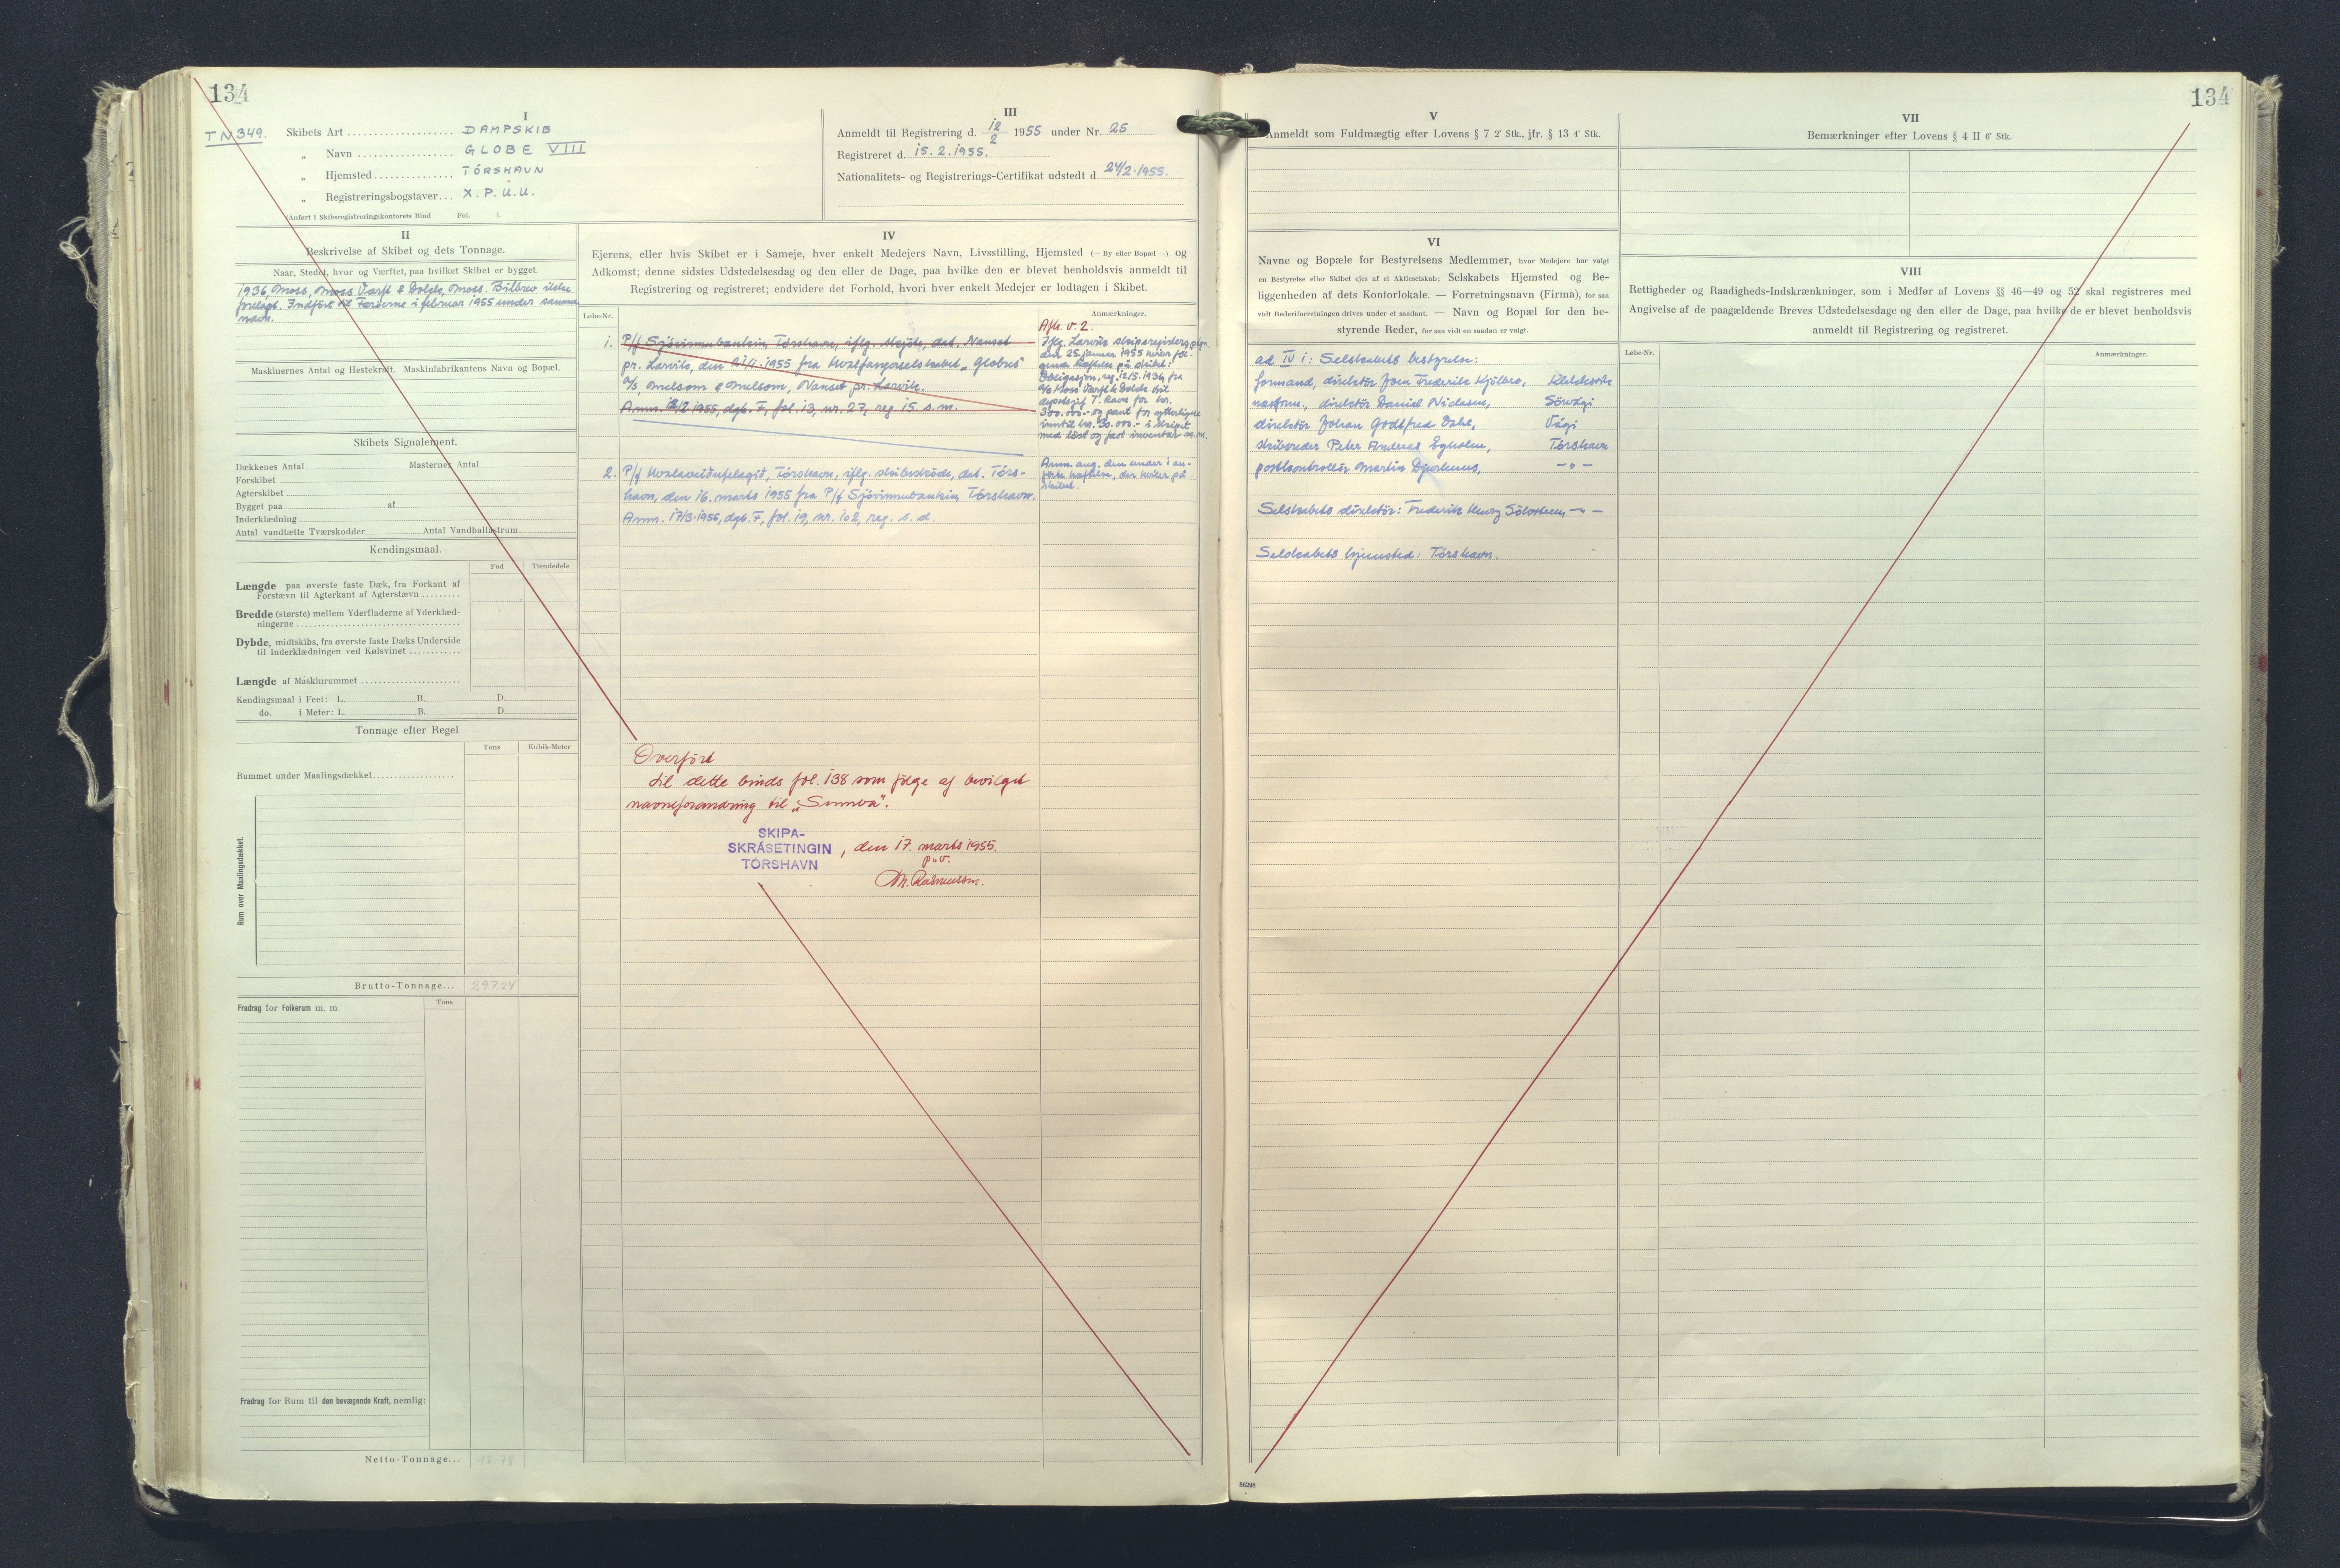 134
TN 349.
I
Skibets Art .................... DAMPSKIB
„ Navn .................. GLOBE VIII
„ Hjemsted.............. TÓRSHAVN
„ Registreringsbogstaver... X.P.U.U.
(Anført i Skibsregistreringskontorets Bind Fol. ).
III
Anmeldt til Registrering d. 12/2 1955 under Nr. 25
Registreret d. 15.2.1955.
Nationalitets- og Registrerings-Certifikat udstedt d. 24/2.1955.
II
Beskrivelse af Skibet og dets Tonnage.
Naar, Stedet, hvor og Værftet, paa hvilket Skibet er bygget.
1936, Moss, Moss Værft & Dokk, Moss. Bilbrev ikke
forelagt. Indført til Færøerne i februar 1955 under samme
navn.
Maskinernes Antal og Hestekraft. Maskinfabrikantens Navn og Bopæl.
Skibets Signalement.
Dækkenes Antal Masternes Antal
Forskibet
Agterskibet
Bygget paa af
Inderklædning
Antal vandtætte Tværskodder Antal Vandballastrum
Kendingsmaal.
Fod Tiendedele
Længde paa øverste faste Dæk, fra Forkant af
Forstævn til Agterkant af Agterstævn ........
Bredde (største) mellem Yderfladerne af Yderklæd-
ningerne ....................................
Dybde, midtskibs, fra øverste faste Dæks Underside
til Inderklædningen ved Kølsvinet ............
Længde af Maskinrummet ......................
Kendingsmaal i Feet: L. B. D.
do. i Meter: L. B. D.
Tonnage efter Regel
Tons Kubik-Meter
Rummet under Maalingsdækket....................
Rum over Maalingsdækket.
Brutto-Tonnage... 297.24
Fradrag for Folkerum m. m. Tons
Fradrag for Rum til den bevægende Kraft, nemlig:
Netto-Tonnage...
IV
Ejerens, eller hvis Skibet er i Sameje, hver enkelt Medejers Navn, Livsstilling, Hjemsted (— By eller Bopæl —) og
Adkomst; denne sidstes Udstedelsesdag og den eller de Dage, paa hvilke den er blevet henholdsvis anmeldt til
Registrering og registreret; endvidere det Forhold, hvori hver enkelt Medejer er lodtagen i Skibet.
Løbe-Nr. Anmærkninger.
1. P/f Sjóvinnubankin, Tórshavn, iflg. skøjte, dat. Nanset
pr. Larvik, den 21/1.1955 fra Hvalfangerselskabet „Globus"
A/S, Melsom & Melsom, Nanset pr. Larvik.
Anm. 12/2 1955, dgb. F, fol. 13, nr. 27, reg. 15. s.m.
Afl. v. 2.
Iflg. Larvik skipsregisters
den 25. januar 1955 hviler føl-
gende hæftelse på skibet:
Obligasjon, reg. 12/5.1936, fra
A/S Moss Værft & Dokk til
T. Ravn for kr.
300.000.- og pant for ytterligere
inntil kr. 30.000.- i skipet
med løst og fast inventar m.m.
2. P/f Hvalaveiðufelagið, Tórshavn, iflg. skibsskøde, dat. Tórs-
havn, den 16. marts 1955 fra P/f Sjóvinnubankin, Tórshavn.
Anm. 17/3.1955, dgb. F, fol. 19, nr. 102, reg. s.d.
Anm. ang. den under 1 an-
førte hæftelse, der hviler på
skibet.
Overført
til dette binds fol. 138 som følge af bevilget
navneforandring til „Sunnva".
SKIPA-
SKRÁSETINGIN
TÓRSHAVN
, den 17. marts 1955.
p.v.
M. Rasmussen.
134
V
Anmeldt som Fuldmægtig efter Lovens § 7 2' Stk., jfr. § 13 4' Stk.
VI
Navne og Bopæle for Bestyrelsens Medlemmer, hvor Medejere har valgt
en Bestyrelse eller Skibet ejes af et Aktieselskab; Selskabets Hjemsted og Be-
liggenheden af dets Kontorlokale. — Forretningsnavn (Firma), for saa
vidt Rederiforretningen drives under et saadant. — Navn og Bopæl for den be-
styrende Reder, for saa vidt en saadan er valgt.
ad IV 1: Selskabets bestyrelse:
formand, direktør Joen Frederik Kjølbro, Klaksvik
næstform., direktør Daniel Niclasen, Sørvági
direktør Johan Godtfred Dahl, Vági
skibsreder Peter Andreas Egholm, Tórshavn
postkontrollør Martin Djurhuus, —"—
Selskabets direktør: Frederik Henry —"—
Selskabets hjemsted: Tórshavn.
VII
Bemærkninger efter Lovens § 4 II 6' Stk.
VIII
Rettigheder og Raadigheds-Indskrænkninger, som i Medfør af Lovens §§ 46—49 og 52 skal registreres med
Angivelse af de paagældende Breves Udstedelsesdage og den eller de Dage, paa hvilke de er blevet henholdsvis
anmeldt til Registrering og registreret.
Løbe-Nr. Anmærkninger.
86298